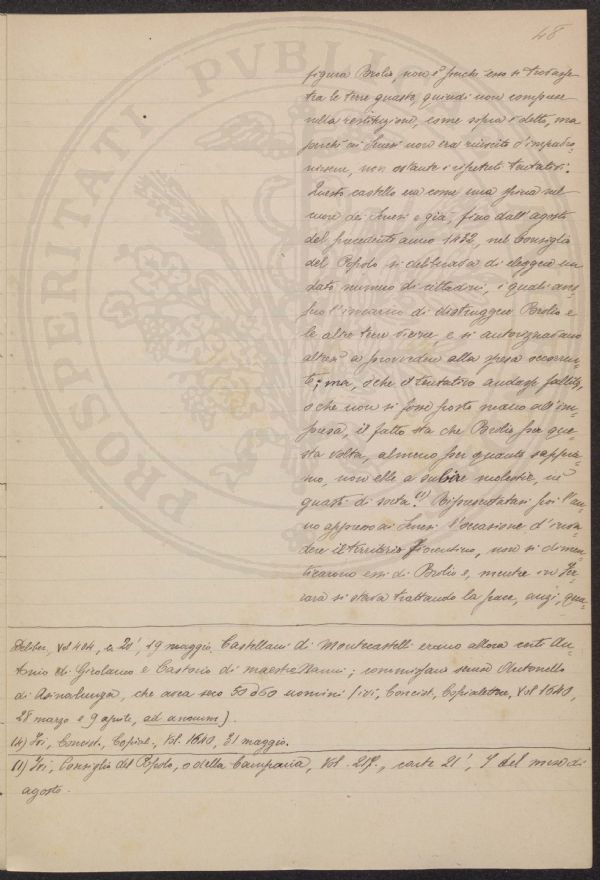 48
figura Brolio, non è perchè esso si trovasse
tra le terre guaste, quindi non comprese
nella restituzione, come sopra è detto, ma
perchè ai Senesi non era riuscito d'impadro-
nirsene, non ostante i ripetuti tentativi.
Questo castello era come una spina nel
cuore dei Senesi e già, fino dall'agosto
del precedente anno 1432, nel Consiglio
del Popolo si deliberava di eleggere un
dato numero di cittadini, i quali aves-
sero l'incarico di distruggere Brolio e
le altre terre vicine, e si autorizzavano
altresì a provvedere alla spesa occorren-
te; ma, o che il tentativo andasse fallito,
o che non si fosse posto mano all'im-
presa, il fatto sta che Brolio per que-
sta volta, almeno per quanto sappia-
mo, non ebbe a subire molestie, nè
guasti di sorta. (1) Ripresentatasi poi l'an-
no appresso ai Senesi l'occasione d'inva-
dere il territorio fiorentino, non si dimen-
ticarono essi di Brolio e, mentre in Fer-
rara si stava trattando la pace, anzi, qua-
Deliber., Vol 404, c. 20', 19 maggio. Castellani di Montecastelli erano allora certi An-
tonio di Girolamo e Castorio di maestro Nanni; commissario senese Antonello
di Asinalunga, che avea seco 50 o 60 uomini (ivi, Concist., Copialettere, Vol 1640,
28 marzo e 9 aprile, ad annum).
(4) Ivi, Concist., Copial., Vol. 1640, 31 maggio.
(1) Ivi, Consiglio del Popolo, o della Campana, Vol. 217., carte 21', del mese di
agosto.
PROSPERITATI PVBLI